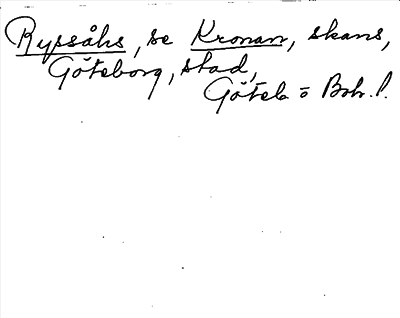 Ryssåhs, se Kronan, skans,
Göteborg, stad,
Göteb o Boh. l.